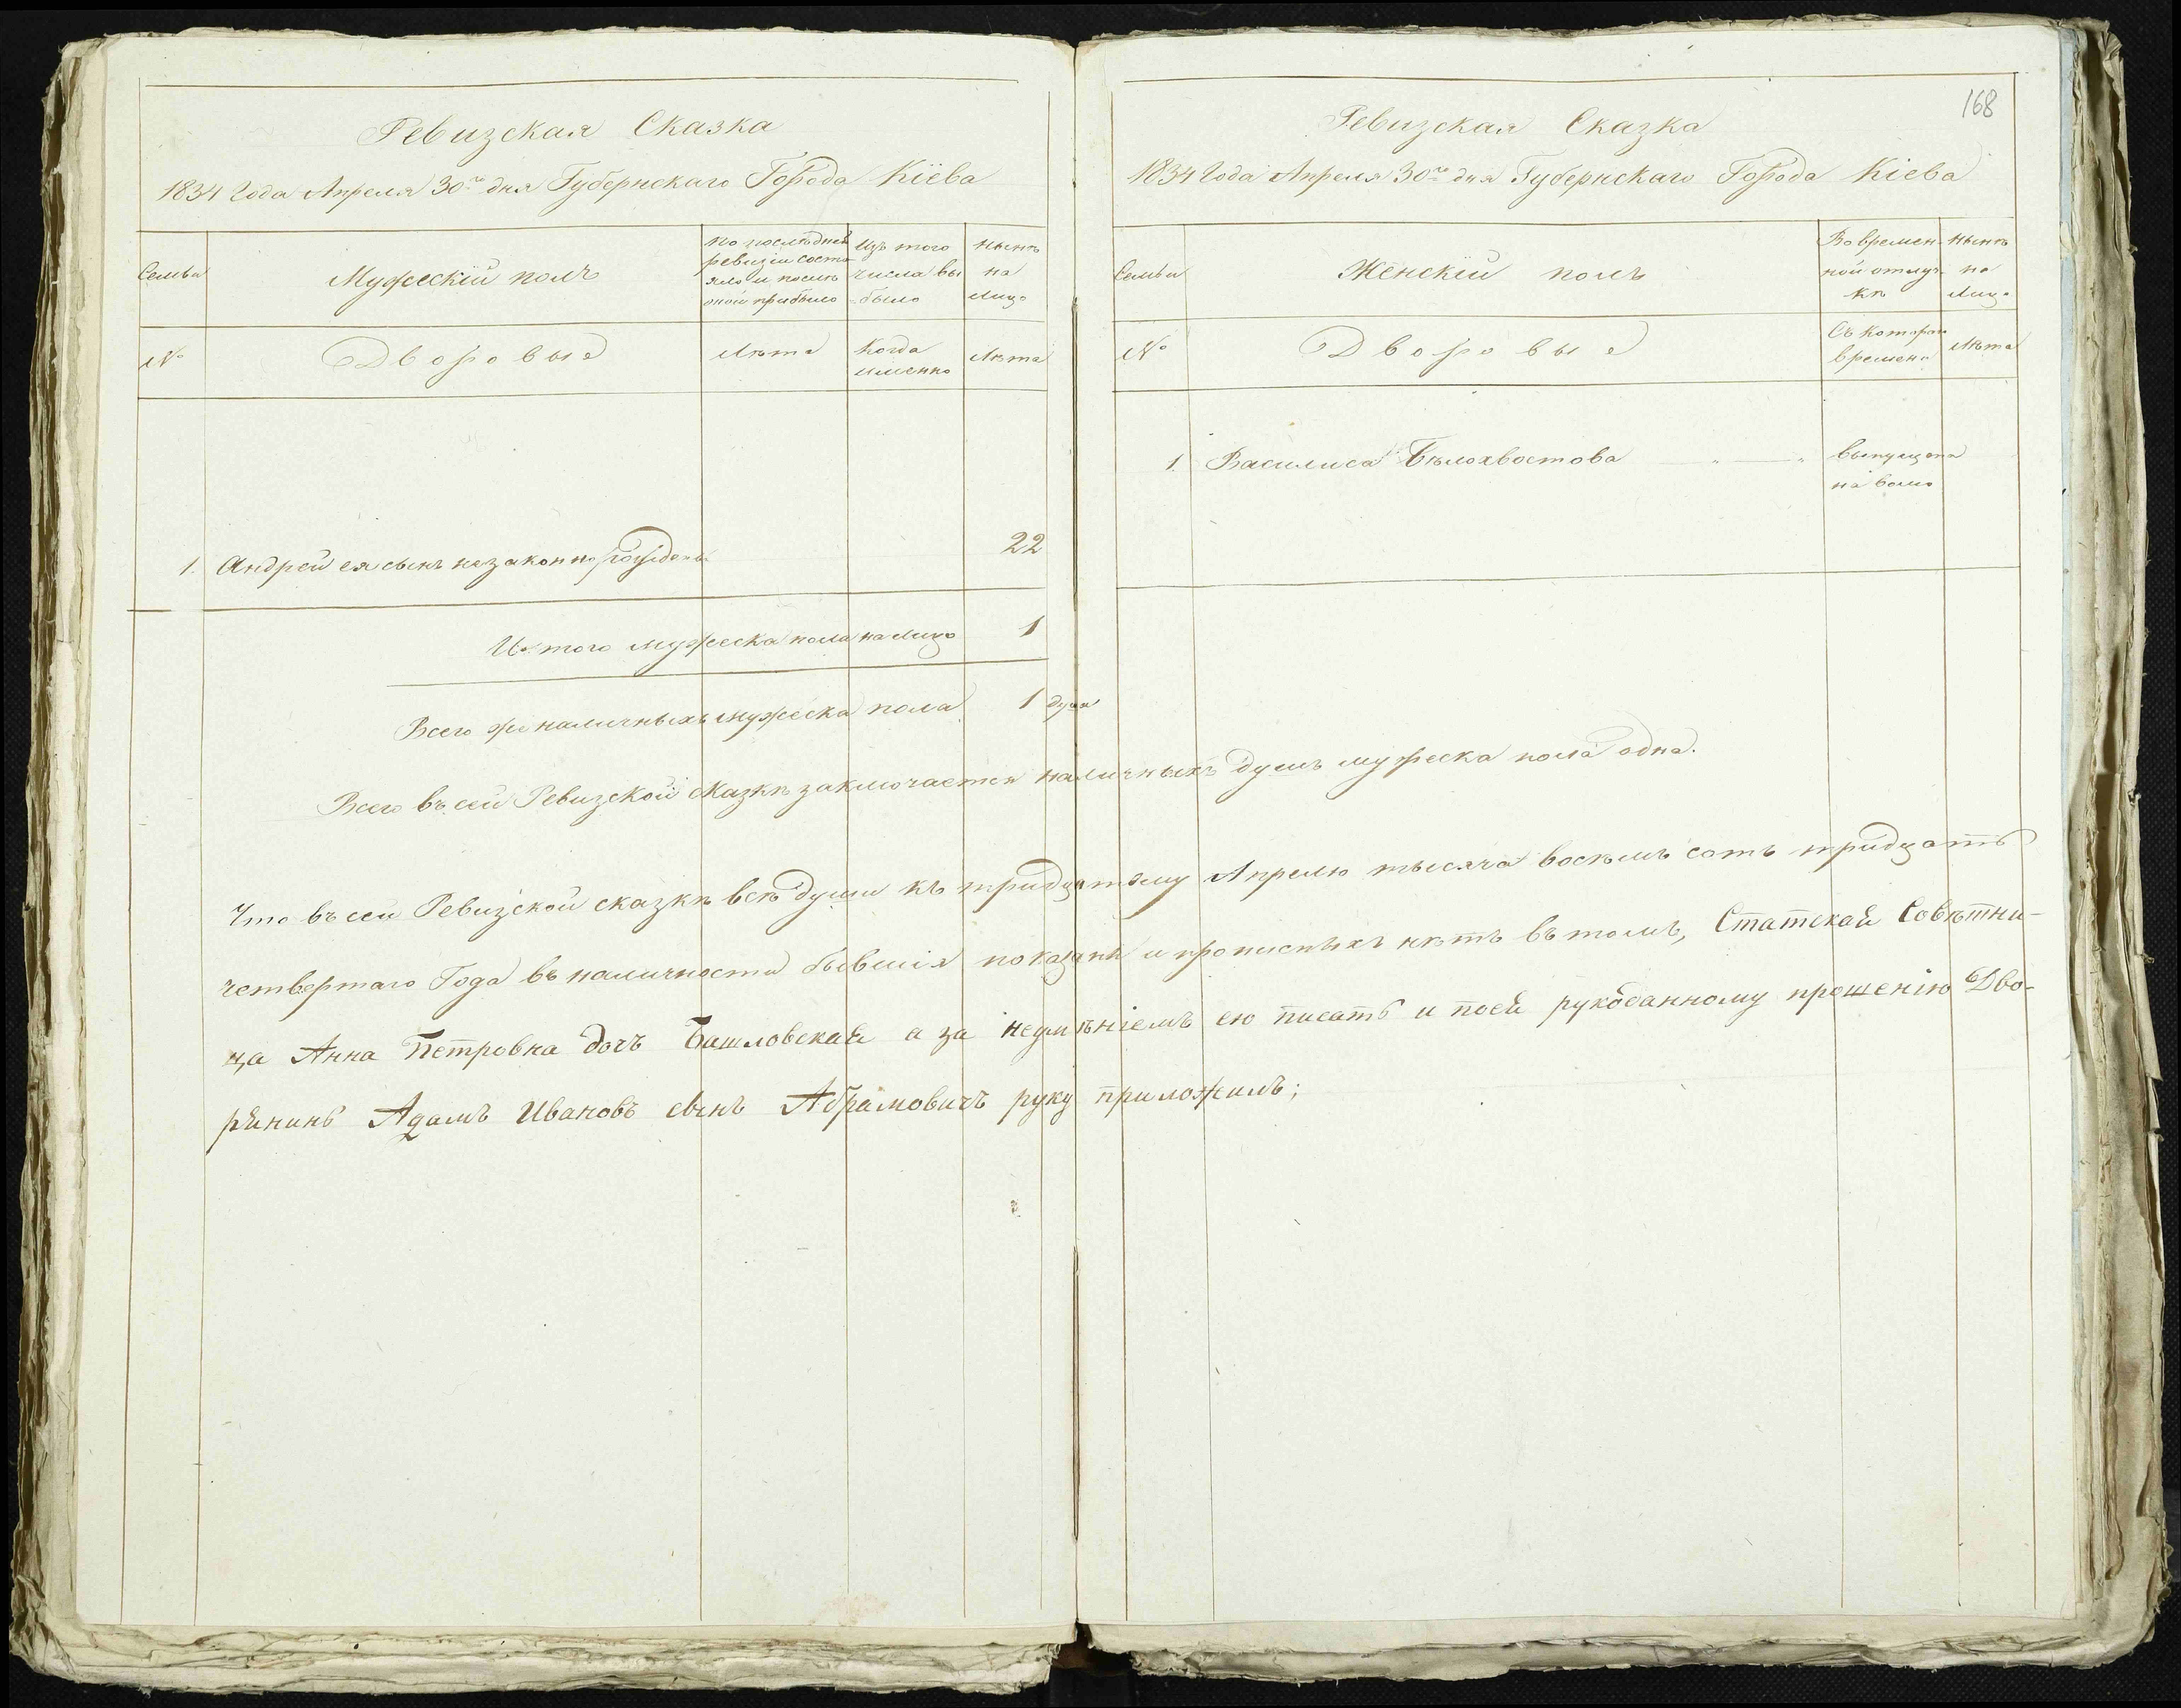 Ревизская Сказка
1834 Года Апреля 30го дня Губернскаго Города Кіева
Семьи
Мужескій полъ
по последней ревизіи состояло и после оной прибыло
Изъ того числа выбыло
Ныне на лицо
№
Дворовые
Лѣта
Когда именно
Лѣта
1. Андрей ея сынъ незаконнорожденъ 22
И того мужеска пола на лицо 1
Всего же наличныхъ мужеска пола 1 душа
168
Ревизская Сказка
1834 Года Апреля 30го дня Губернскаго Города Кіева
Семьи
Женскій полъ
Во временной отлучкѣ
Нынѣ на лицо
№
Дворовые
Съ котораго времени
Лѣта
1. Василиса Бѣлохвостова " — " выпущена
на волю
Всего въ сей Ревизской сказкѣ заключается наличныхъ душъ мужеска пола одна.
Что въ сей Ревизской сказкѣ всѣ души къ тридцатому Апрелю тысяча восѣмь сотъ тридцать
четвертаго Года въ наличности бывшія показаны и прописныхъ нѣтъ въ томъ, Статская Совѣтни-
ца Анна Петровна дочь Башловская а за неумѣніемъ ею писать и поея рукоданному прошенію Дво-
рянинъ Адамъ Ивановъ сынъ Абрамовичъ руку приложилъ;